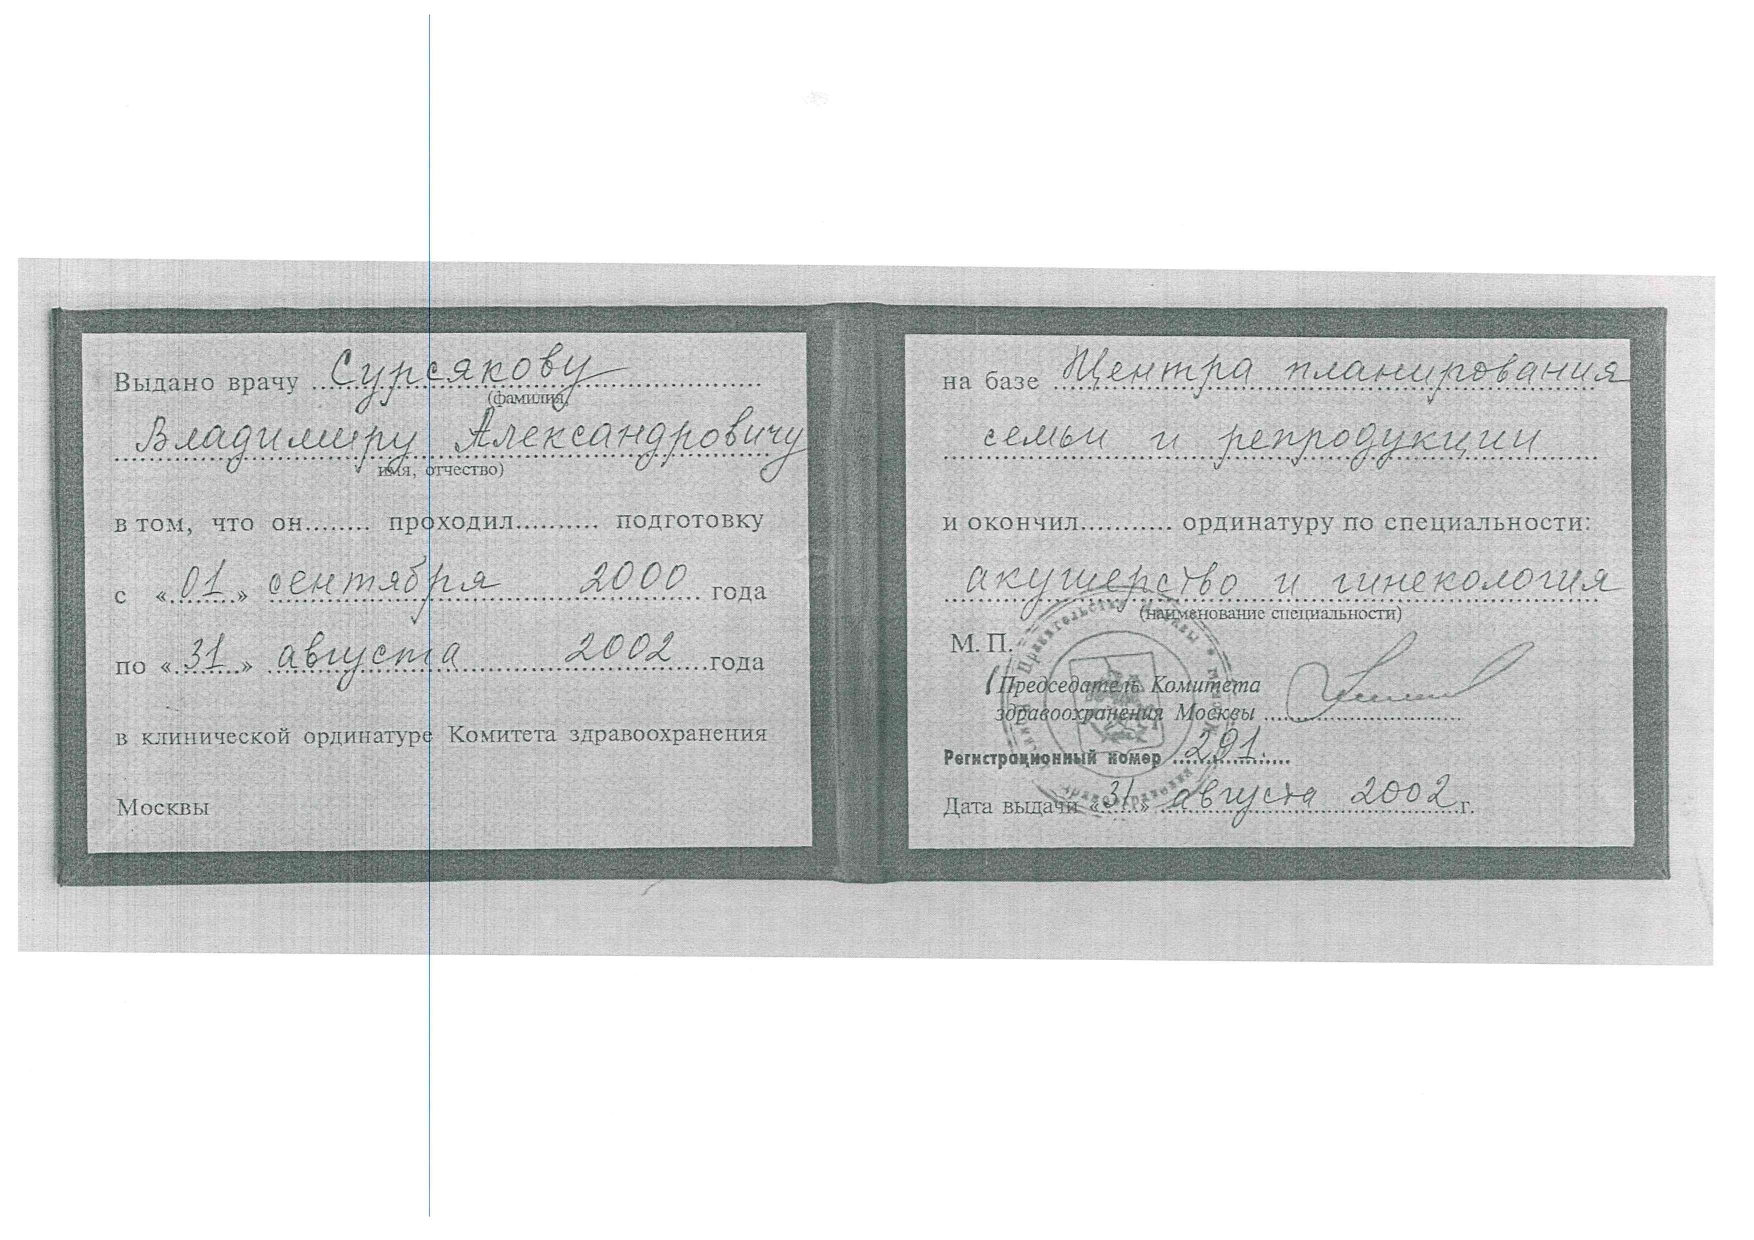 Выдано врачу Сурсякову
(фамилия,
Владимиру Александровичу
имя, отчество)
в том, что он........ проходил.......... подготовку
с «01» сентября 2000 года
по «31» августа 2002 года
в клинической ординатуре Комитета здравоохранения
Москвы
на базе Центра планирования
семьи и репродукции
и окончил........... ординатуру по специальности:
акушерство и гинекология
(наименование специальности)
М. П.
Председатель Комитета
здравоохранения Москвы
Регистрационный номер 291.
Дата выдачи «31» августа 2002 г.